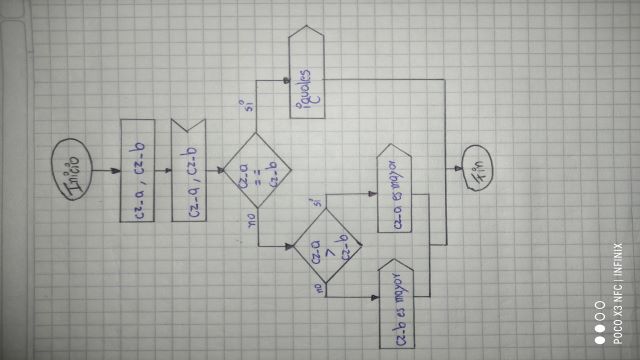 Inicio
cz_a, cz_b
cz_a, cz_b
cz_a
==
cz_b
no
si
iguales
cz_a
>
cz_b
no
si
cz_b es mayor
cz_a es mayor
Fin
POCO X3 NFC | INFINIX